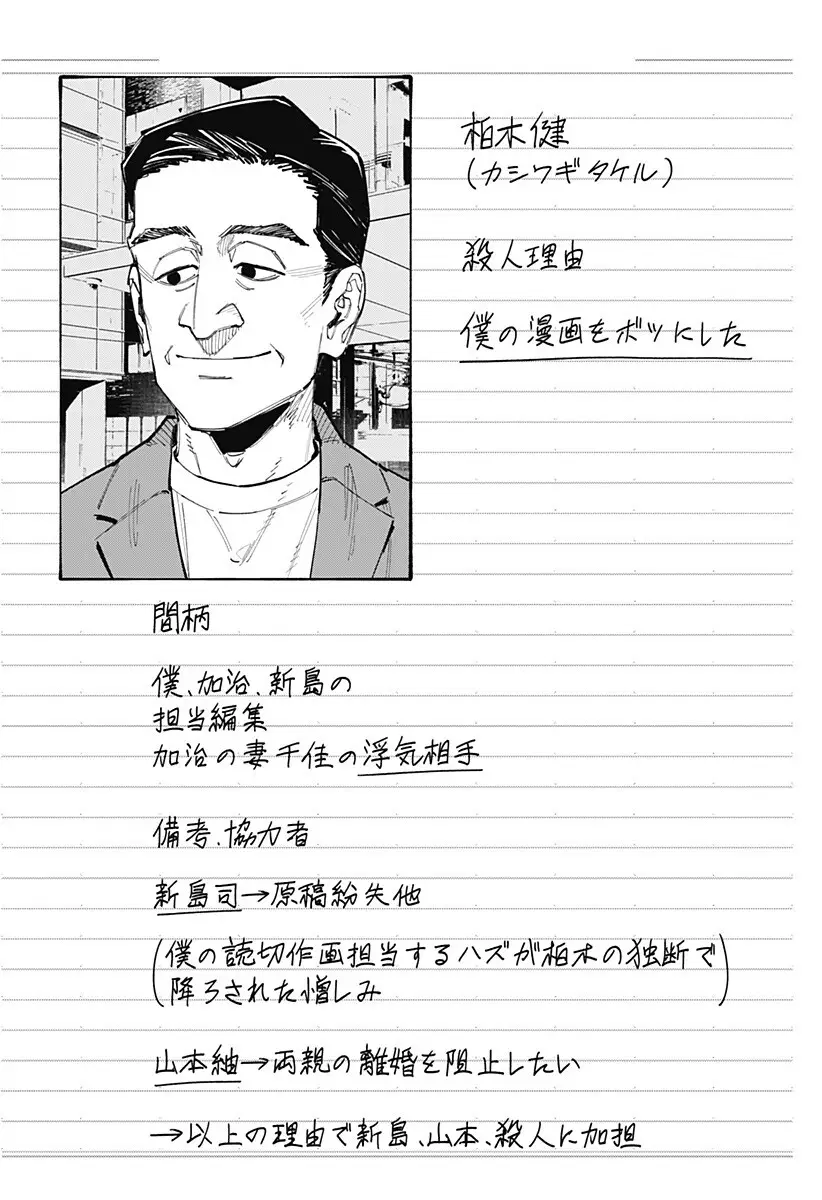 柏木健
(カシワギタケル)
殺人理由
僕の漫画をボツにした
間柄
僕、加治、新島の
担当編集
加治の妻千佳の浮気相手
備考、協力者
新島司→原稿紛失他
(僕の読切作画担当するハズが柏木の独断で
降ろされた憎しみ)
山本紬→両親の離婚を阻止したい
→以上の理由で新島、山本、殺人に加担